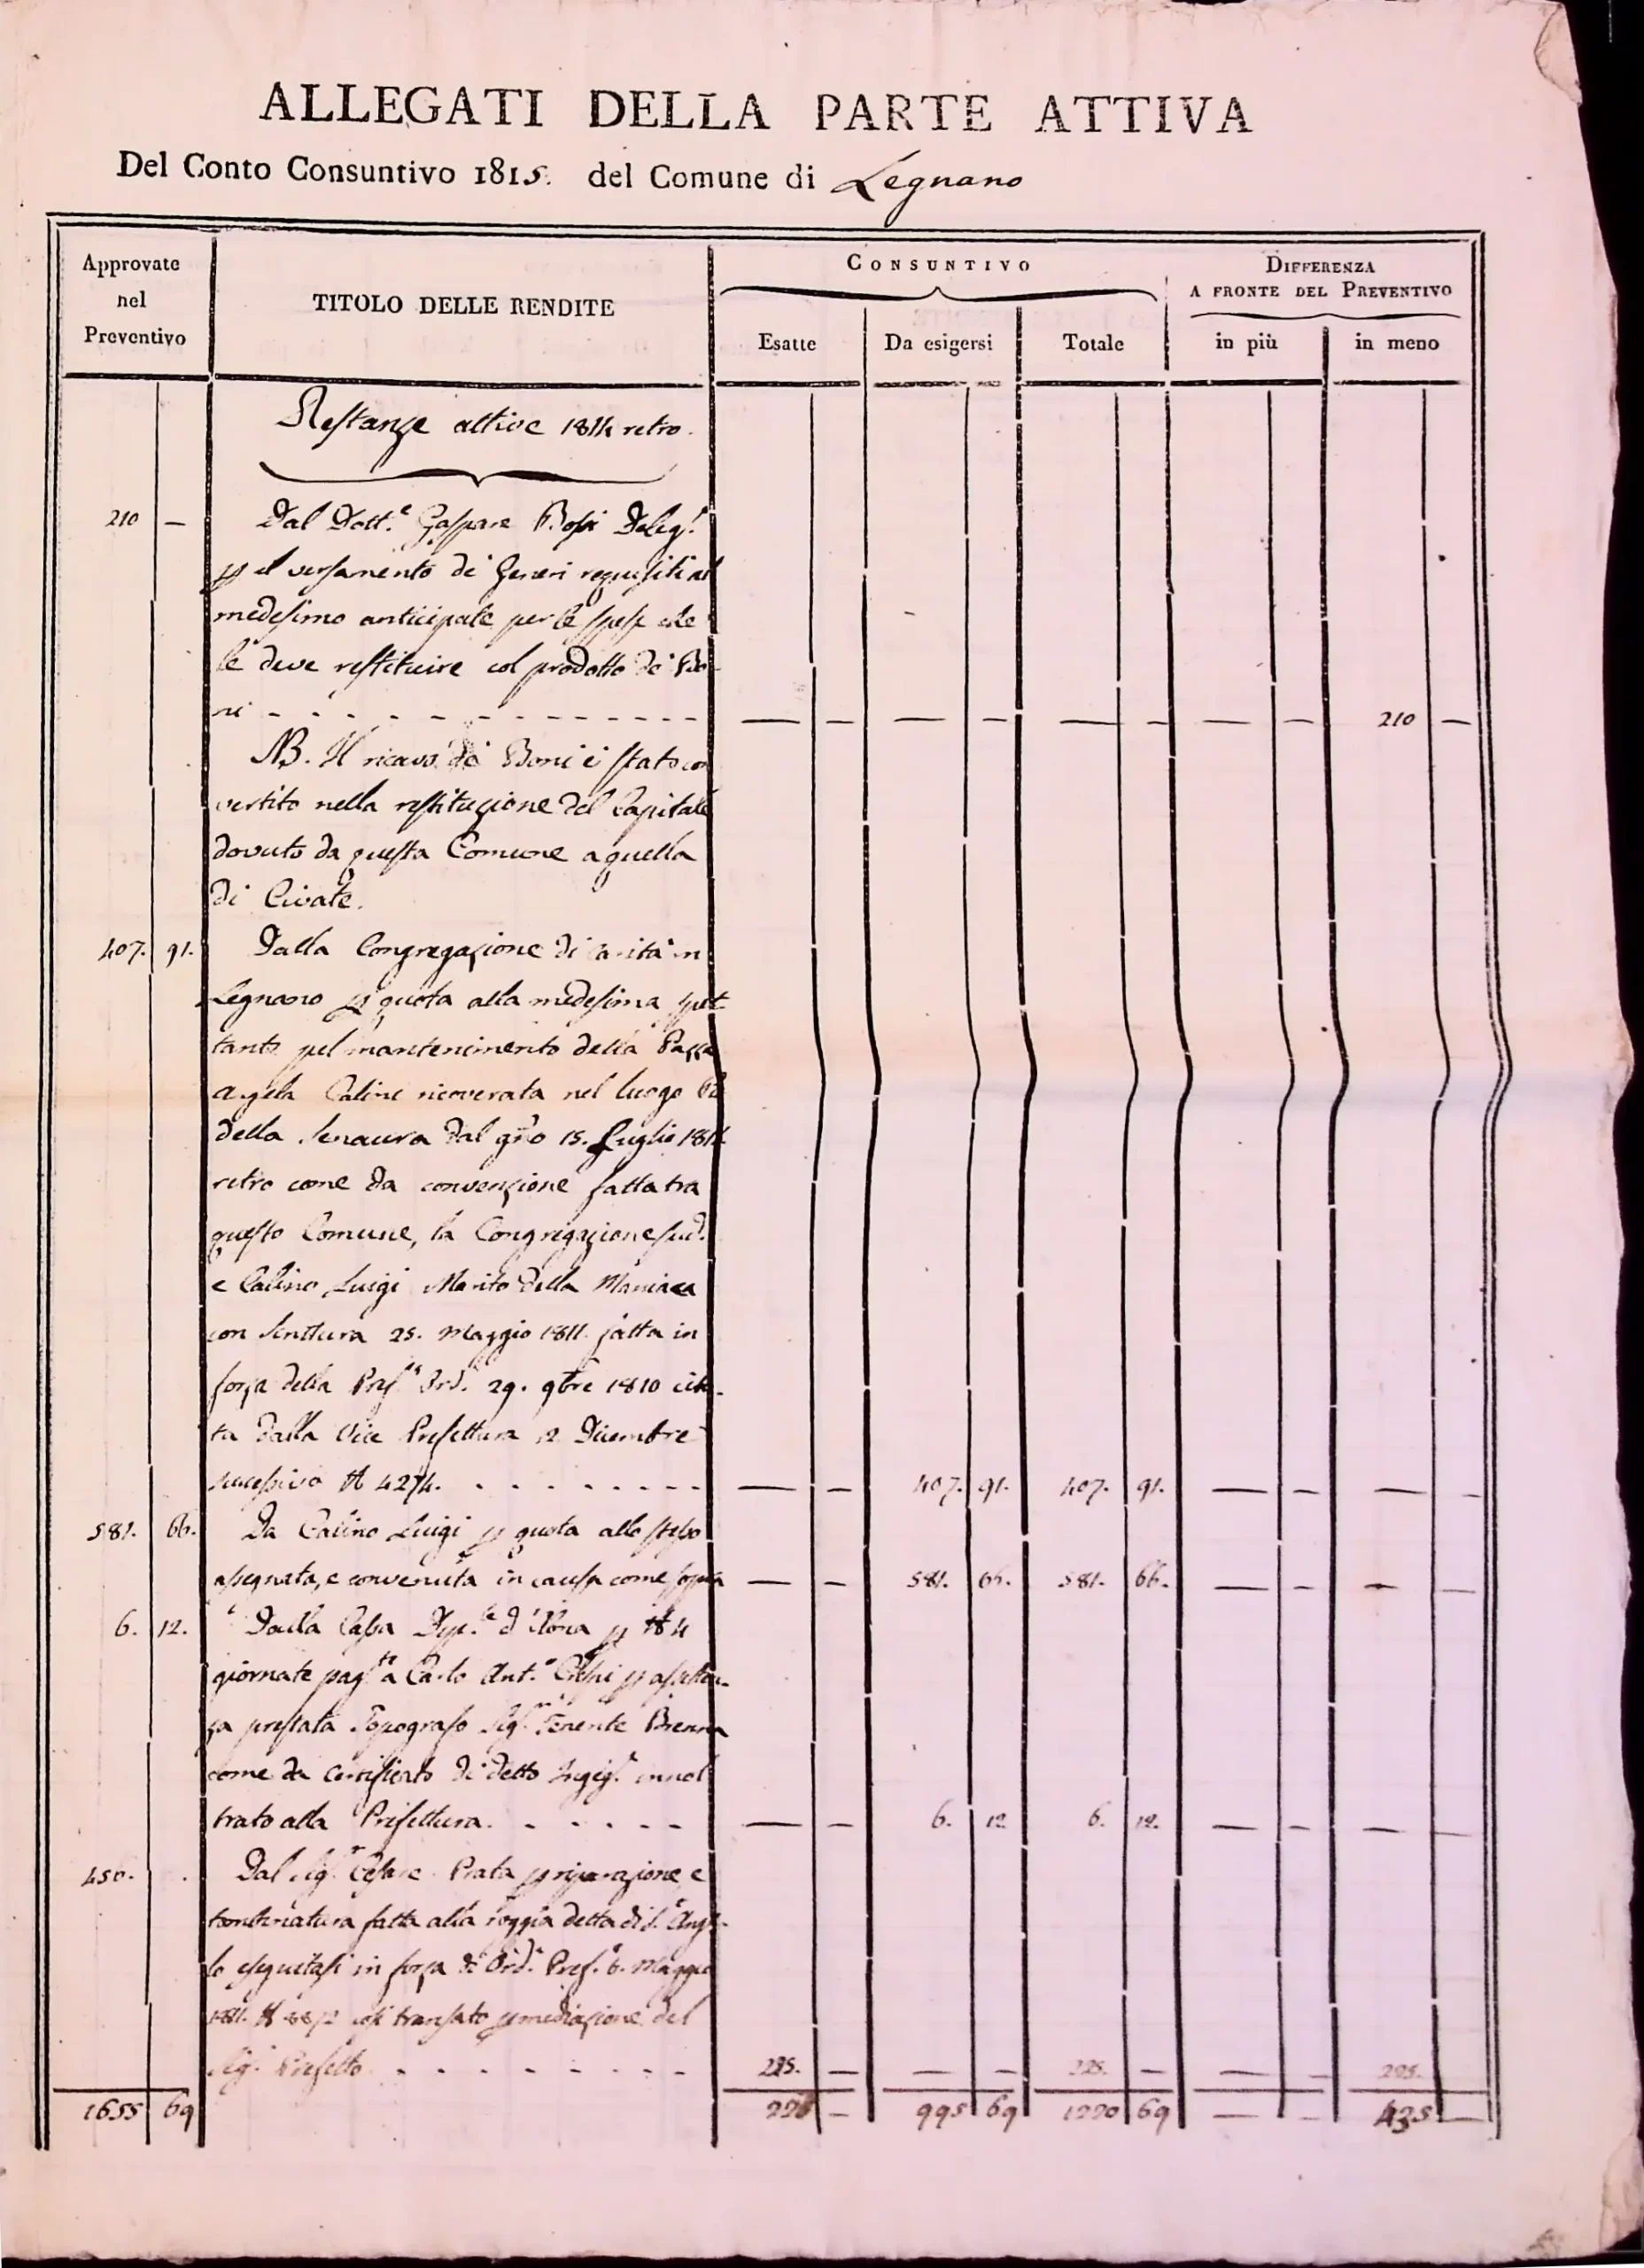 ALLEGATI DELLA PARTE ATTIVA
Del Conto Consuntivo 1815. del Comune di Legnano
Approvate nel Preventivo
TITOLO DELLE RENDITE
CONSUNTIVO
Esatte
Da esigersi
Totale
DIFFERENZA
A FRONTE DEL PREVENTIVO
in più
in meno
Restanze attive 1814 retro.
210 — Dal Dott.e Gaspare Bossi Deleg.
il versamento di Generi requisiti al
medesimo anticipate per le spese che
le deve restituire col prodotto de' Bo
ni - - - — — — — — — — — 210 —
NB. Il ricavo de' Boni è stato con
vertito nella restituzione del Capitale
dovuto da questa Comune a quella
di Civate.
407. 91. Dalla Congregazione di Carità in
Legnano quota alla medesima spet
tante pel mantenimento della Pazza
Angela Calini ricoverata nel luogo Pio
della Senavra dal gno 15. Luglio 1814
retro come da convenzione fatta tra
questo Comune, la Congregazione sud.
e Calino Luigi Marito della Maniaca
con Scrittura 25. Maggio 1811. fatta in
forza della Pref. Ord. 29. 9bre 1810 cita-
ta dalla Vice Prefettura 2 Dicembre
successivo N 4274. - - - — — 407. 91. 407. 91. — — — —
581. 66. Da Calino Luigi quota allo stesso
assegnata, e convenuta in causa come sopra — — 581. 66. 581. 66. — — — —
6. 12. Dalla Cassa N 4
giornate pag.te a Carlo Ant.o Crespi assisten-
za prestata Topografo Sig. Tenente Brenna
come da Certificato di detto innol
trato alla Prefettura. - - - — — 6. 12 6. 12. — — — —
450. . Dal Sig.r Cesare Prata riparazione, e
fatta alla roggia detta di S. Ange-
lo eseguitasi in forza di Ord. Pref. 6. Maggio
1811. N così transato mediazione del
Sig. Prefetto - - - 225. — — — 225. — — — 225.
1655 69 225 — 995 69 1220 69 — — 435 —